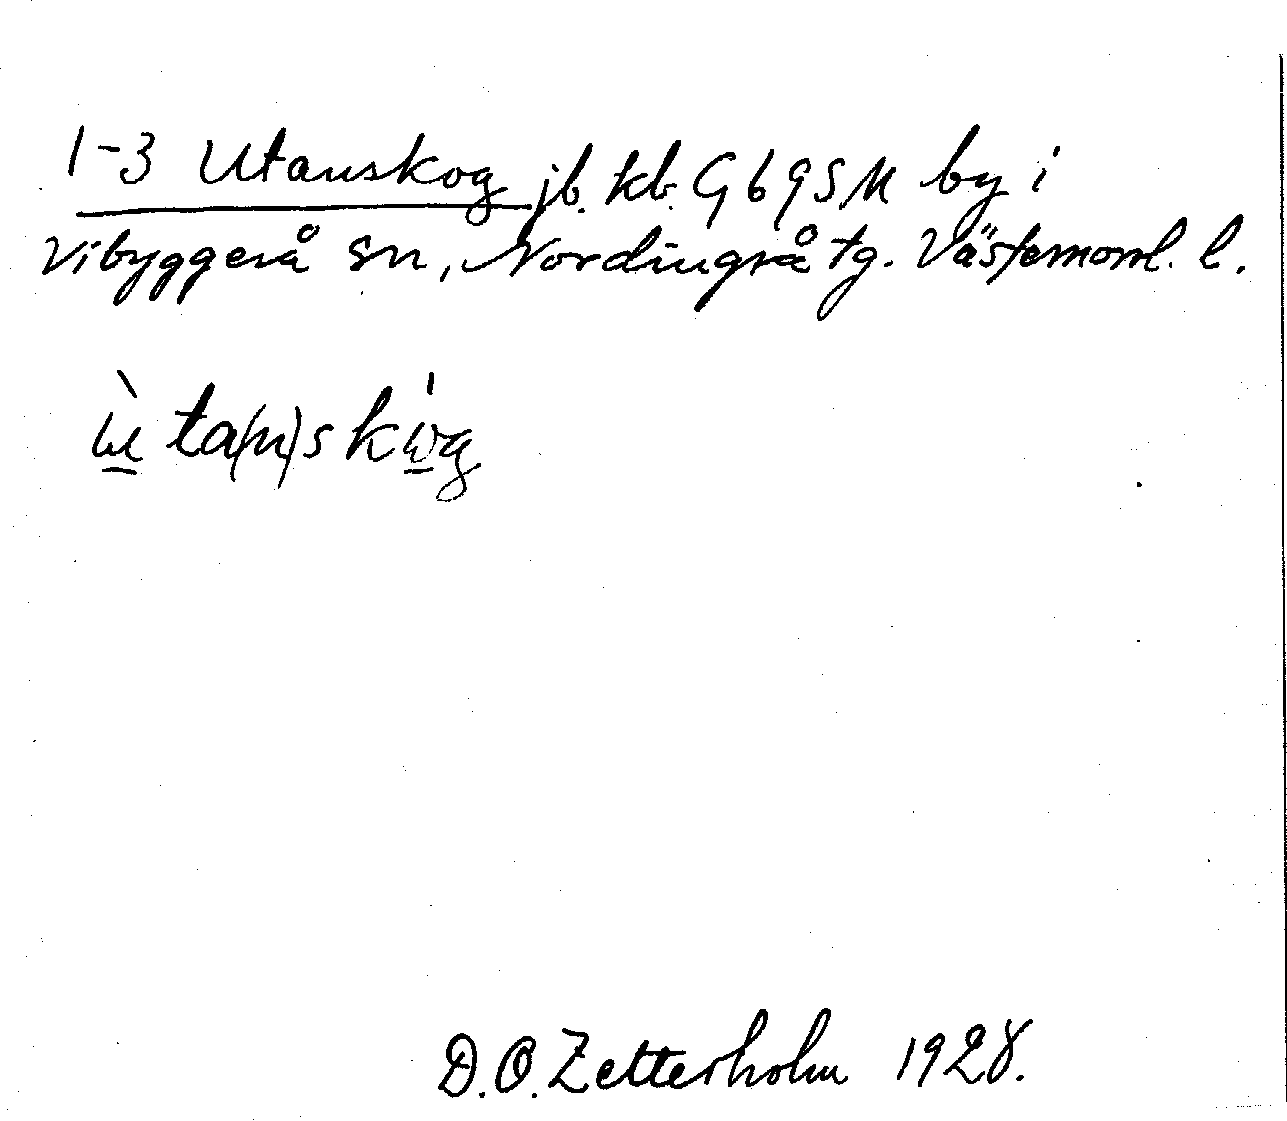 1-3 Utanskog jb. kb. G69SM by i
Vibyggerå sn, Nordingrå tg. Västernorrl. l.
ɯ̀ ta(n)skɷ́g
D.O. Zetterholm 1928.